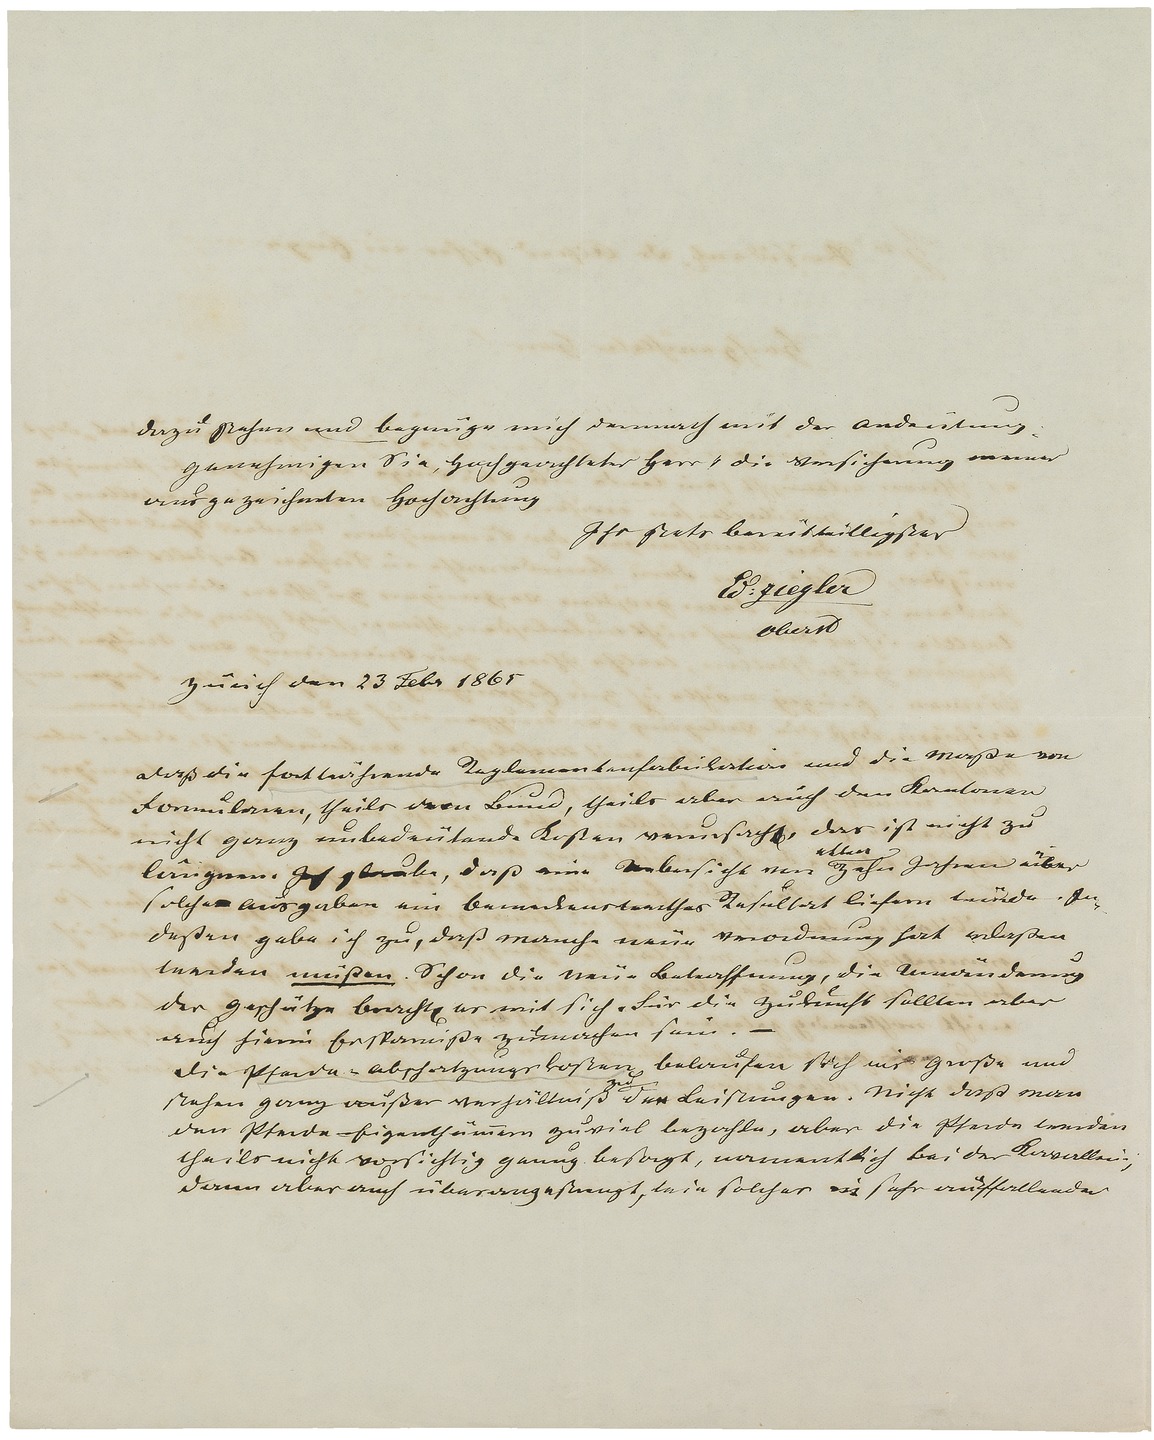 dazu stehen und begnüge mich demnach mit der Andeutung.
Genehmigen Sie, Hochgeachteter Herr! die Versicherung meiner
ausgezeichneten Hochachtung
Ihr stets bereitwilligster
Ed: Ziegler
Oberst
Zürich den 23 Febr 1865
Daß die fortwährende Reglementenfabrikation und die Maße von
Formularen, theils dem Bund, theils aber auch den Kantonen
nicht ganz unbedeutende Kosten verursacht, das ist nicht zu
läugnen. Ich glaube, daß eine Uebersicht von etwa zehn Jahren über
solche Ausgaben ein bemerkenswerthes Resultat liefern würde. In-
deßen gebe ich zu, daß manche neue Verordnung hat erlaßen
werden müßen. Schon die neue Bewaffnung, die Umänderung
der Geschütze brachte es mit sich. Für die Zukunft sollten aber
auch hierin Ersparniße zumachen sein. —
Die Pferde-Abschatzungskosten belaufen sich ins Große und
stehen ganz außer Verhältniß zu den Leistungen. Nicht daß man
den Pferde-Eigenthümern zuviel bezahle, aber die Pferde werden
theils nicht vorsichtig genug besorgt, namentlich bei der Kavallerie,
dann aber auch überangestrengt, wie solches in sehr auffallender